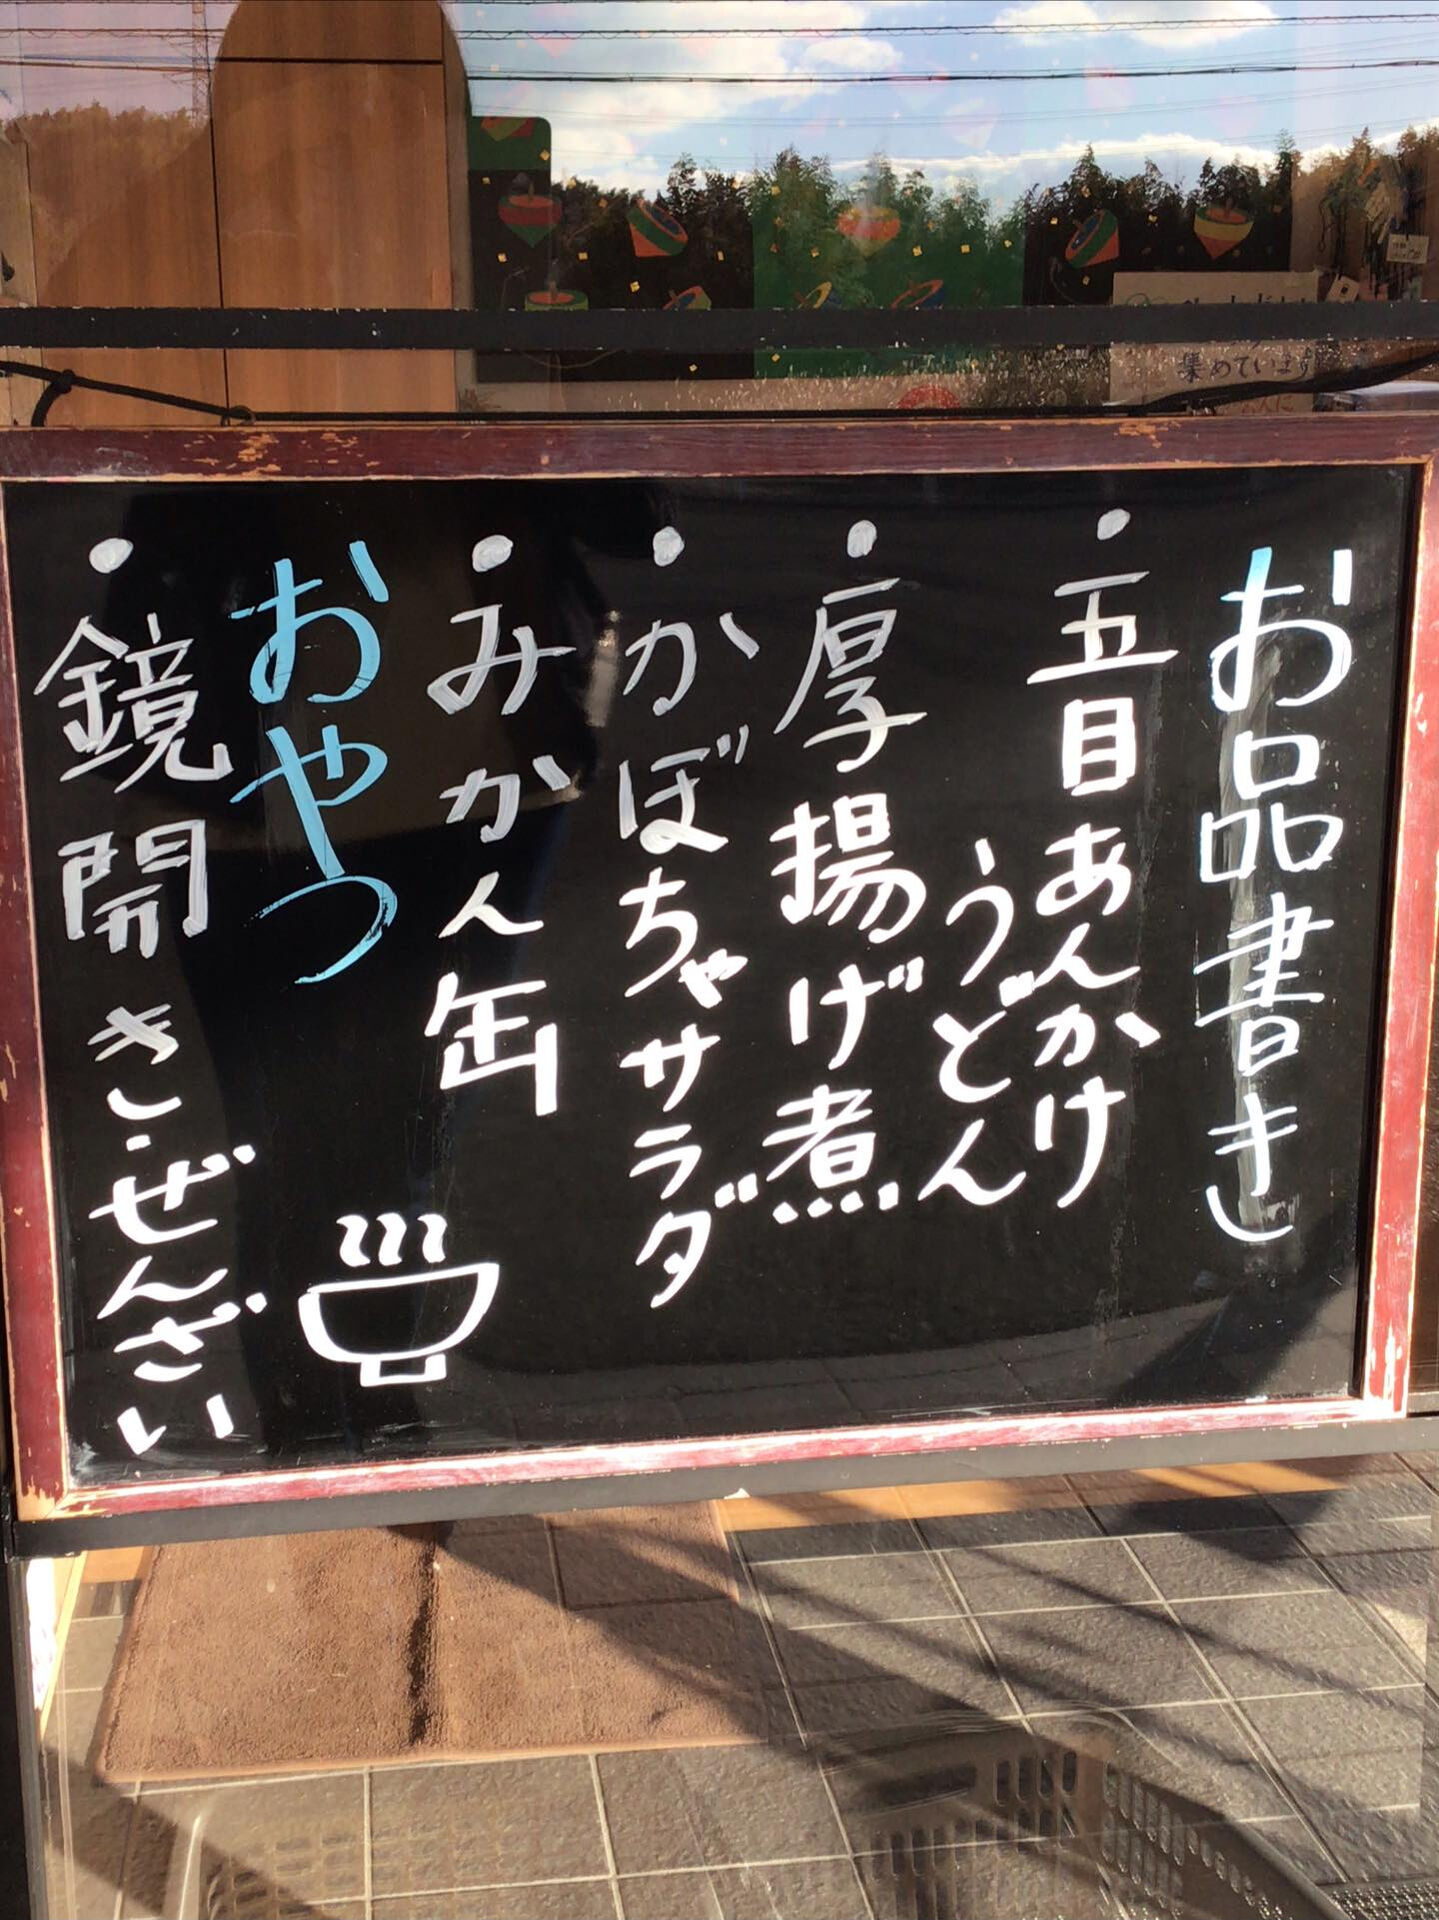 お品書き
・五目あんかけ
うどん
・厚揚げ煮
・かぼちゃサラダ
・みかん缶
おやつ
・鏡開き・ぜんざい
集めています